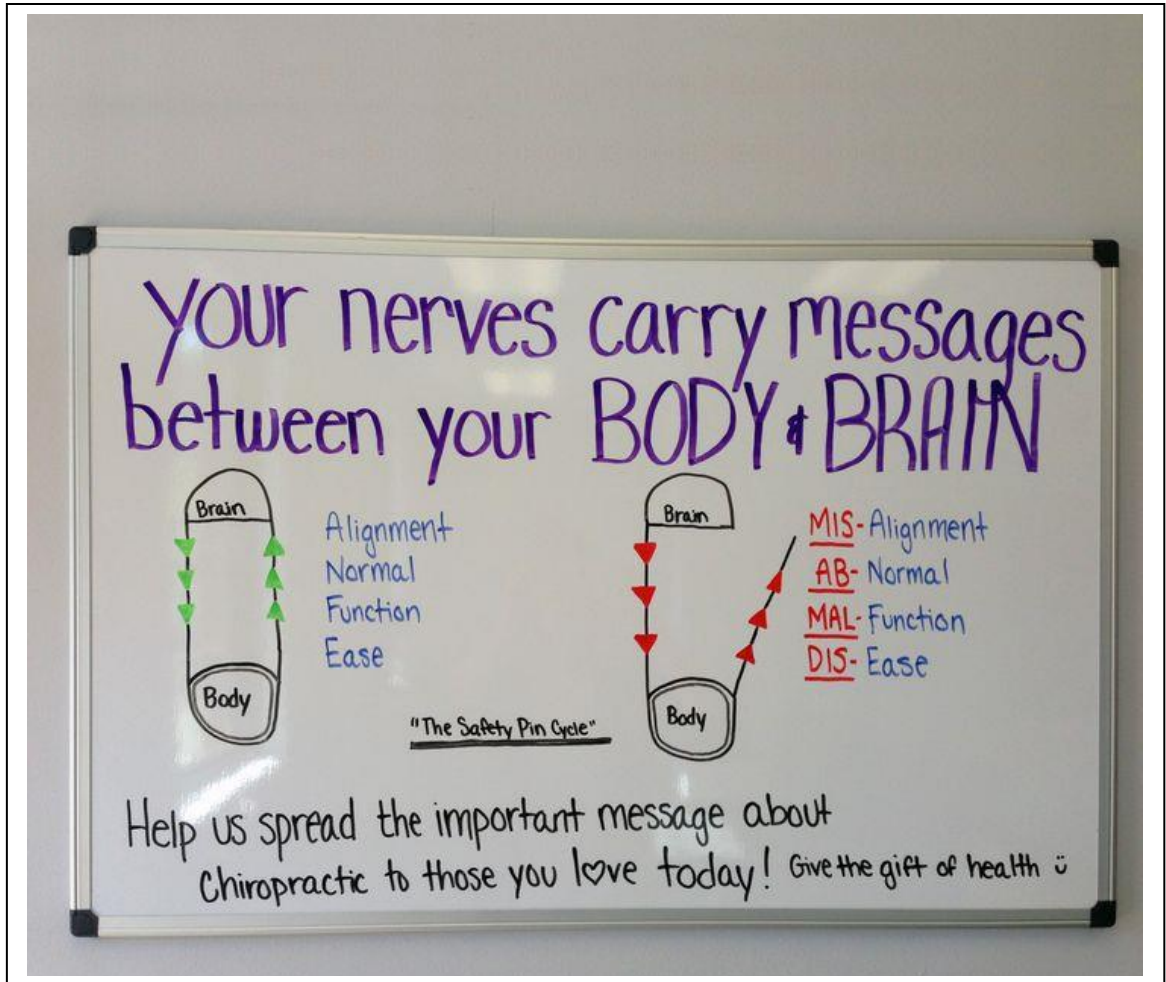 your nerves carry messages
between your BODY & BRAIN
Brain
Body
Alignment
Normal
Function
Ease
"The Safety Pin Cycle"
Brain
Body
MIS-Alignment
AB-Normal
MAL-Function
DIS-Ease
Help us spread the important message about
Chiropractic to those you l♡ve today! Give the gift of health ü